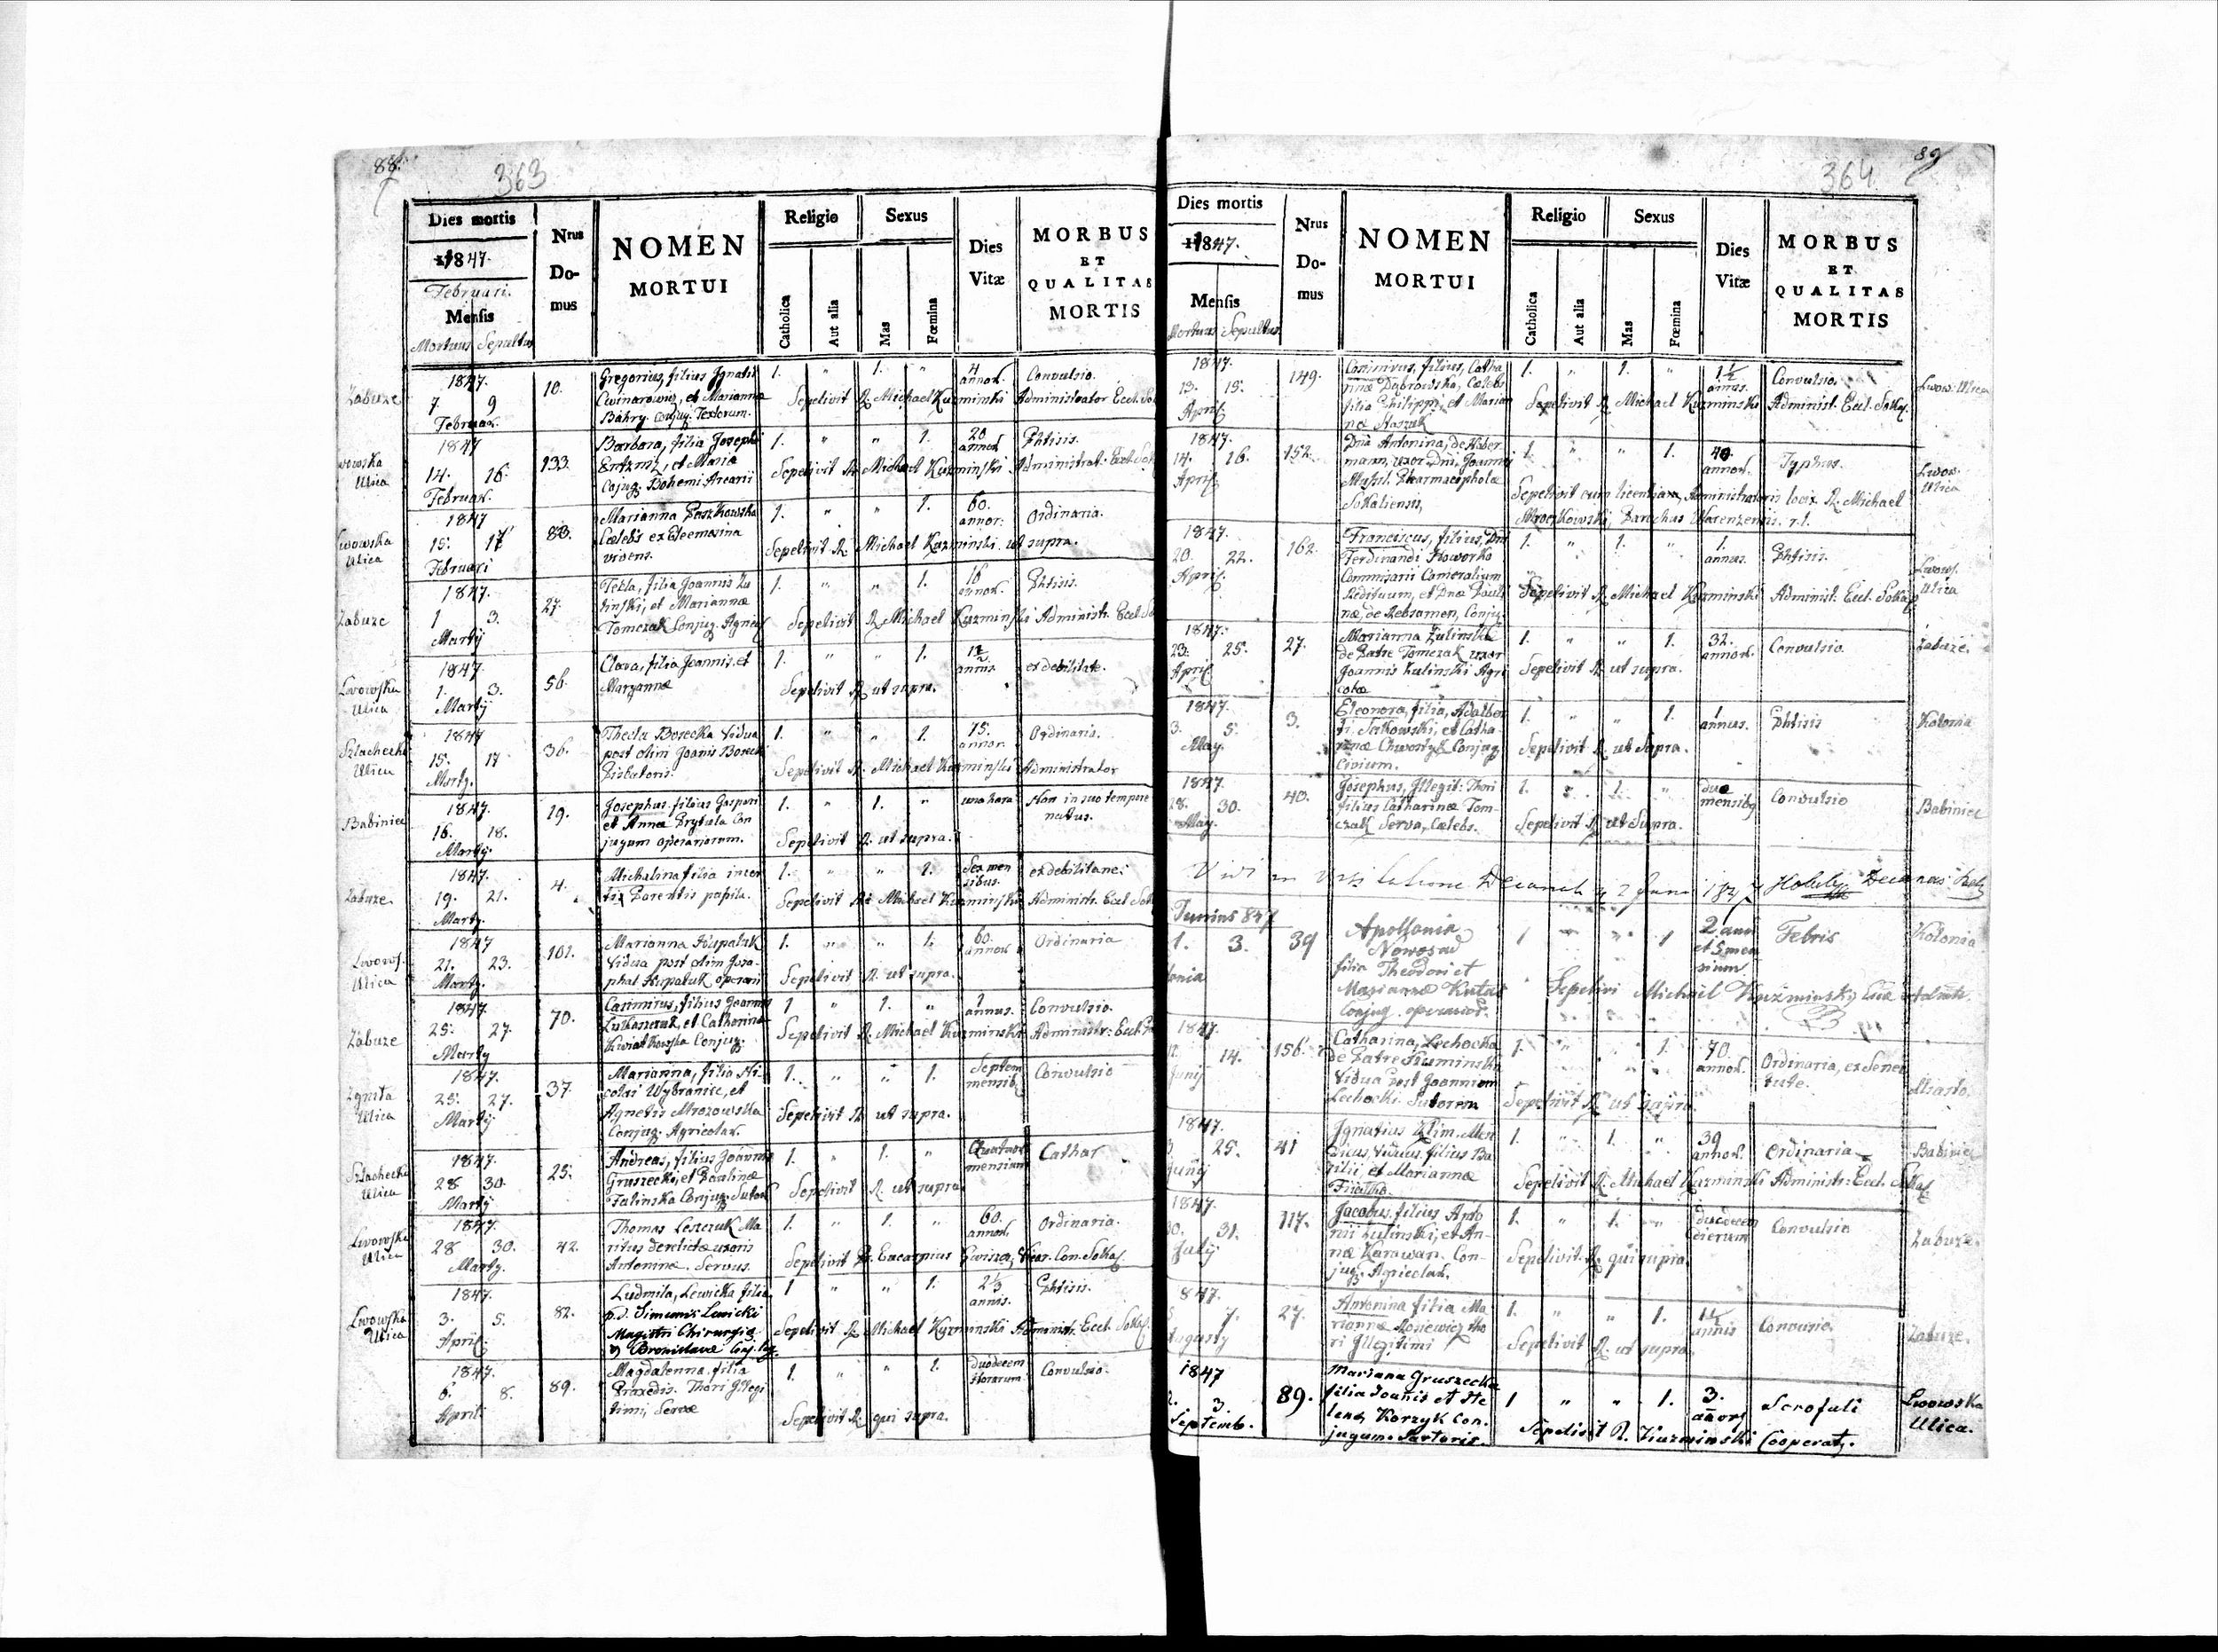 88.
363
Dies mortis
1847.
Februari.
Mensis
Mortuus Sepultus
Nrus
Do-
mus
NOMEN
MORTUI
Religio
Catholica
Aut alia
Sexus
Mas
Fœmina
Dies
Vitæ
MORBUS
ET
QUALITAS
MORTIS
Zabuze
1847.
7 9
Februar.
10.
Gregorius, filius Ignatii
et Marianna
Bahry. Conjug. Textorum.
1. " 1. "
4
annor.
Convulsio.
Sepelivit R. Michael Kuzminski Administrator Eccl.
Lwowska
Ulica
1847
14. 16.
Februar.
133.
Barbara, filia Josephi
et Maria
Cojug. Bohemi Arcarii
1. " " 1.
20
annor.
Phtisis.
Sepelivit R. Michael Kuzminski Administrat. Eccl.
Lwowska
Ulica
1847
15. 17
Februari
83.
Marianna Paszkowska
Cælebs ex Eleemosina
vivens.
1. " " 1.
60.
annor:
Ordinaria.
Sepelivit R. Michael Kuzminski ut supra.
Zabuze
1847.
1 3.
Martij
27.
Tekla, filia Joannis Zu
linski, et Mariannæ
Tomczak Conjug. Agricol
1. " " 1.
16
annor.
Phtisis.
Sepelivit R. Michael Kuzminski Administr. Eccl.
Lwowska
Ulica
1847.
1. 3.
Martij
56.
Clara, filia Joannis et
Maryannæ
1. " " 1.
annis
ex debilitate.
Sepelivit R. ut supra.
Szlachecka
Ulica
1847
15. 17
Martij.
36.
Thecla Borecka Vidua
post olim Joanis Borecki
Pistatoris.
1. " " 1.
75.
annor.
Ordinaria.
Sepelivit R. Michael Kuzminski Administrator
Babiniec
1847.
16. 18.
Martij.
19.
Josephus, filius Gaspari
et Annæ Prytula Con
jugum operariorum.
1. " 1. "
una hora
Non in suo tempore
natus.
Sepelivit R. ut supra.
Zabuze.
1847.
19. 21.
Martij.
4.
Michalina filia incer
tis Parentis pupila.
1. " " 1.
Sex men
sibus.
ex debilitane:
Sepelivit R. Michael Kuzminski Administr. Eccl
Lwows.
Ulica
1847
21. 23.
Martij.
101.
Marianna Kupaluk
Vidua post olim Josa-
phat Kupaluk operarii
1. " " 1.
60.
annor.
Ordinaria
Sepelivit R. ut supra.
Zabuze
1847.
25. 27.
Martij
70.
Casimirus, filius Joannis
et Catharina
Kwiatkowska Conjug:
1 " 1. "
1
annus.
Convulsio.
Sepelivit R. Michael Kuzminski Administr: Eccl.
Zgnita
Ulica
1847.
25. 27.
Martij
37.
Marianna, filia Ni-
colai Wybraniec, et
Agnetis Mrozowska
Conjug. Agricolar.
1. " " 1.
Septem
mensib.
Convulsio
Sepelivit R. ut supra.
Szlachecka
Ulica
1847.
28 30.
Martij
25.
Andreas, filius Joannis
Gruszecki, et Paulinæ
Falinska Conjug. Sutor
1. " 1. "
Quatuor
mensium
Cathar
Sepelivit R. ut supra
Lwowska
Ulica
1847.
28 30.
Martij.
42.
Thomas Leszczuk Ma
ritus derelictæ uxoris
Antoninæ. Servus.
1. " 1. "
60.
annor.
Ordinaria.
Sepelivit R. Eucarpius Vicar. Con. Sokal.
Lwowska
Ulica
1847.
3. 5.
April:
82.
Ludmila, Lewicka filia
p.d. Simonis Lewicki
Magistri Chirurgiæ
Bronislavæ Conj. leg.
1 " " 1.
2 1/3
annis.
Phtisis.
Sepelivit R. Michael Kuzminski Administr. Eccl. Sokal.
1847.
6. 8.
Aprili
89.
Magdalenna filia
Praxedis. Thori Illegi
timi, Servæ
1. " " 1.
duodecem
horarum
Convulsio.
Sepelivit R. qui supra.
89
364
Dies mortis
1847.
Mensis
Mortuus Sepultus
Nrus
Do-
mus
NOMEN
MORTUI
Religio
Catholica
Aut alia
Sexus
Mas
Fœmina
Dies
Vitæ
MORBUS
ET
QUALITAS
MORTIS
1847.
13. 15.
April
149.
Casimirus, filius, Catha
rinæ Dąbrowska, Cælebs
filia Philippi, et Marian
næ
1. " 1. "
1 1/2
annus.
Convulsio.
Lwow. Ulica
Sepelivit R. Michael Kuzminski Administ. Eccl. Sokal.
1847.
14. 16.
April
152.
Dna Antonina, de Haber
mann, uxor Dni. Joannis
Pharmacopholæ
Sokaliensis,
1. " " 1.
40.
annor.
Typhus.
Lwow.
Ulica
Sepelivit cum licentia, Administratoris loci R. Michael
Mroczkowski, Parochus r.l.
1847.
20. 22.
April
162.
Franciscus, filius, Dni
Ferdinandi Haworka
Commisarii Cameralium
Redituum, et Dnæ Pauli
næ, de Rebsamen, Conjug.
1. " 1. "
1.
annus.
Phtisis.
Lwows.
Ulica
Sepelivit R. Michael Kuzminski Administ: Eccl. Sokal
1847.
23. 25.
April
27.
Marianna Zulinska
de Patre Tomczak uxor
Joannis Zulinski Agri
colæ
1. " " 1.
32.
annor.
Convulsio.
Zabuze.
Sepelivit R. ut supra.
1847.
3. 5.
May.
3.
Eleonora, filia, Adalber
ti, et Catha-
rinæ Chwostyk Conjug.
Civium.
1. " " 1.
1
annus.
Phtisis
Kolonia
Sepelivit R. ut Supra.
1847.
28. 30.
May.
40.
Josephus, Illegit: Thori
filius Catharinæ Tom-
czak Serva, Cælebs.
1. " 1. "
duæ
mensibq
Convulsio
Babiniec
Sepelivit R. ut Supra.
Vidi in visitatione Decanali 2 Juni 1847
Junius 847
1. 3.
39
Apollonia
Nowosad
filia Theodori et
Mariannæ
Conjug. operarior.
1 " " 1
2 ann
et 5 men
sium.
Febris
Kolonia
Sepelivi Michael Kuzminski
1847.
14.
Junij
156.
Catharina, Lechocka
de Patre
Vidua post Joannem
Lechocki Sutorem
1. " " 1.
70.
annor.
Ordinaria, ex Senec
tute.
Miasto.
Sepelivit R. ut supra.
1847.
25.
Junij
41
Ignatius Klim. Men
dicus, Viduus, filius Ba
silii, et Mariannæ
1. " 1. "
39
annor.
Ordinaria
Babiniec
Sepelivit R. Michael Kuzminski Administr: Eccl. Sokal
1847.
30. 31.
July
117.
Jacobus, filius Anto
nii Zulinski, et An-
næ Karawan. Con-
jug. Agricolar.
1. " 1. "
duodecem
dierum
Convulsio
Zabuze.
Sepelivit R. qui supra.
847.
7.
Augusty
27.
Antonina filia Ma
riannæ Tho
ri Illegitimi
1. " " 1.
1 1/2
annis
Convulsio
Zabuze.
Sepelivit R. ut supra
1847
2. 3.
Septemb.
89.
Mariana Gruszecka
filia Joanis et He
lena, Korzyk Con.
jugum. Sartoris.
1 " " 1.
3.
annor
Scrofuli
Lwowska
Ulica.
Sepelivit R. Kuzminski Cooperat.